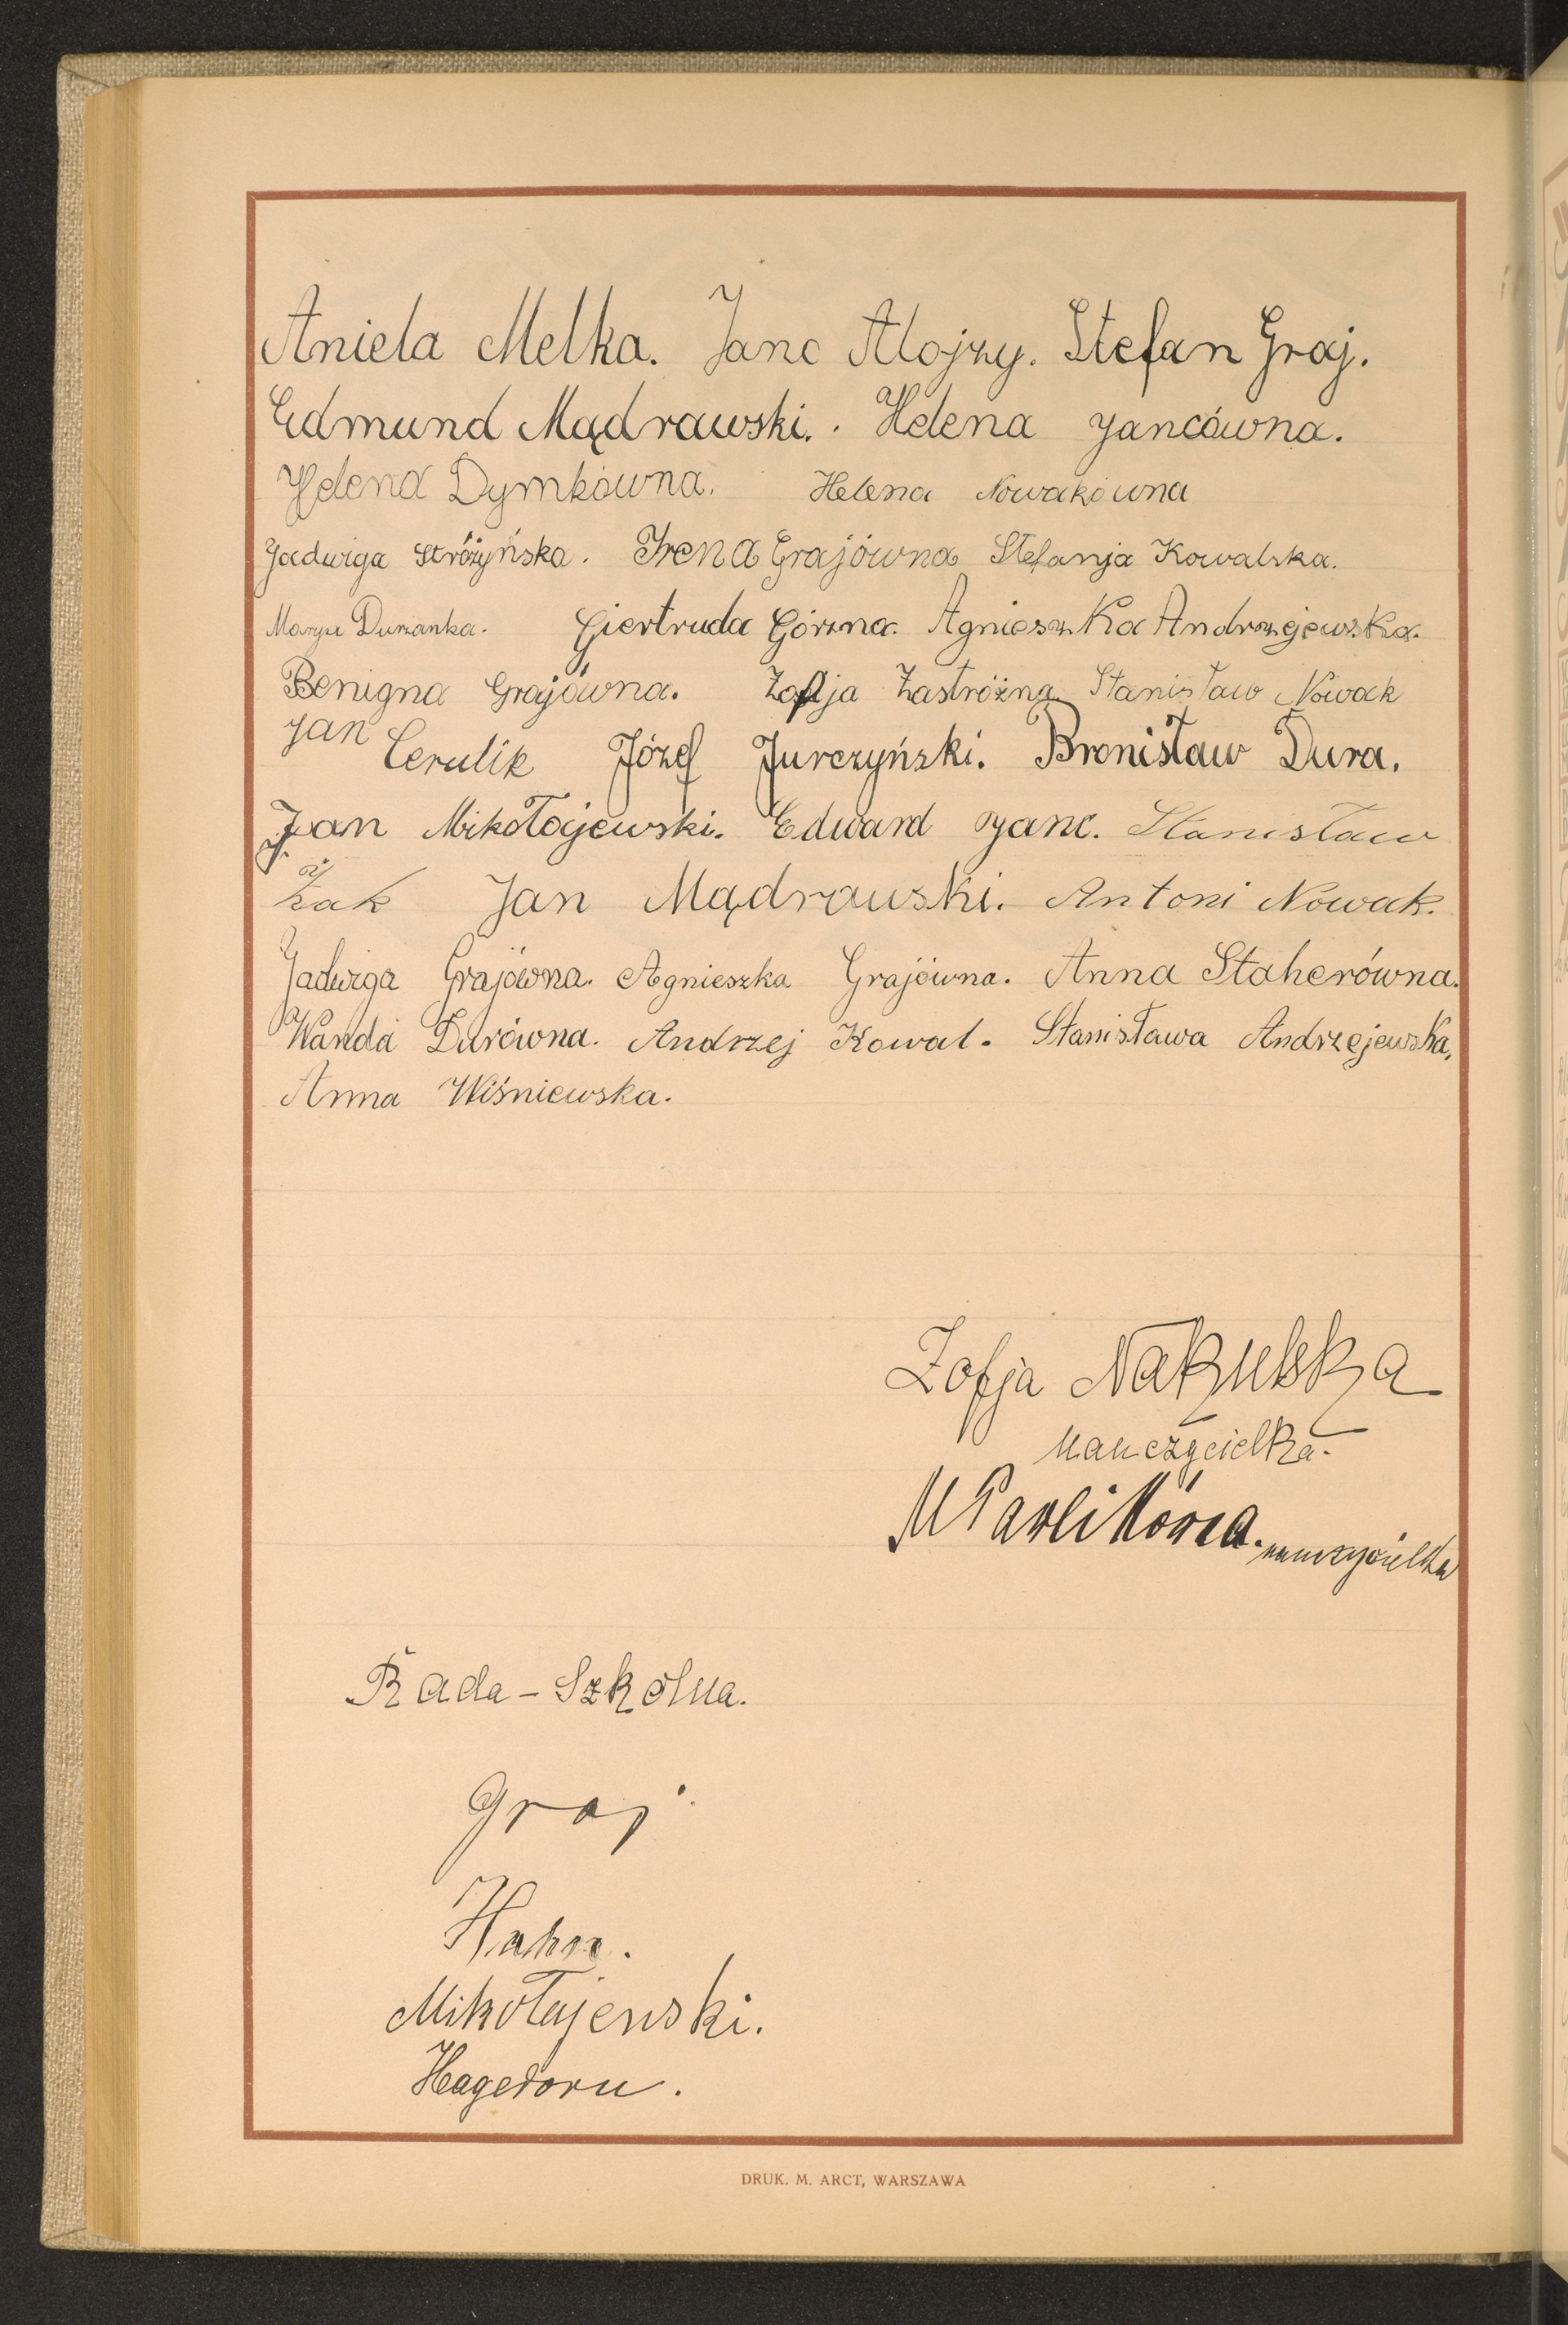 Aniela Melka. Janc Alojzy. Stefan Graj.
Edmund Mądrawski. Helena Jancówna.
Helena Dymkówna. Helena Nowakówna
Jadwiga Stróżyńska. Irena Grajówna Stefanja Kowalska.
Marya Durzanka. Giertruda Górzna. Agnieszka Andrzejewska.
Benigna Grajówna. Zofja Zastróżna Stanisław Nowak
Jan Cerulik Józef Jurczyński. Bronisław Dura.
Jan Mikołajewski. Edward Janc. Stanisław
Żak Jan Mądrawski. Antoni Nowak.
Jadwiga Grajówna. Agnieszka Grajówna. Anna Staherówna.
Wanda Durówna. Andrzej Kowal. Stanisława Andrzejewska,
Anna Wiśniewska.
Zofja Nakulska
nauczycielka.
M Pawlikówna. nauczycielka
Rada-Szkolna.
Graj
Hahn.
Mikołajewski.
Hagedorn.
DRUK. M. ARCT, WARSZAWA